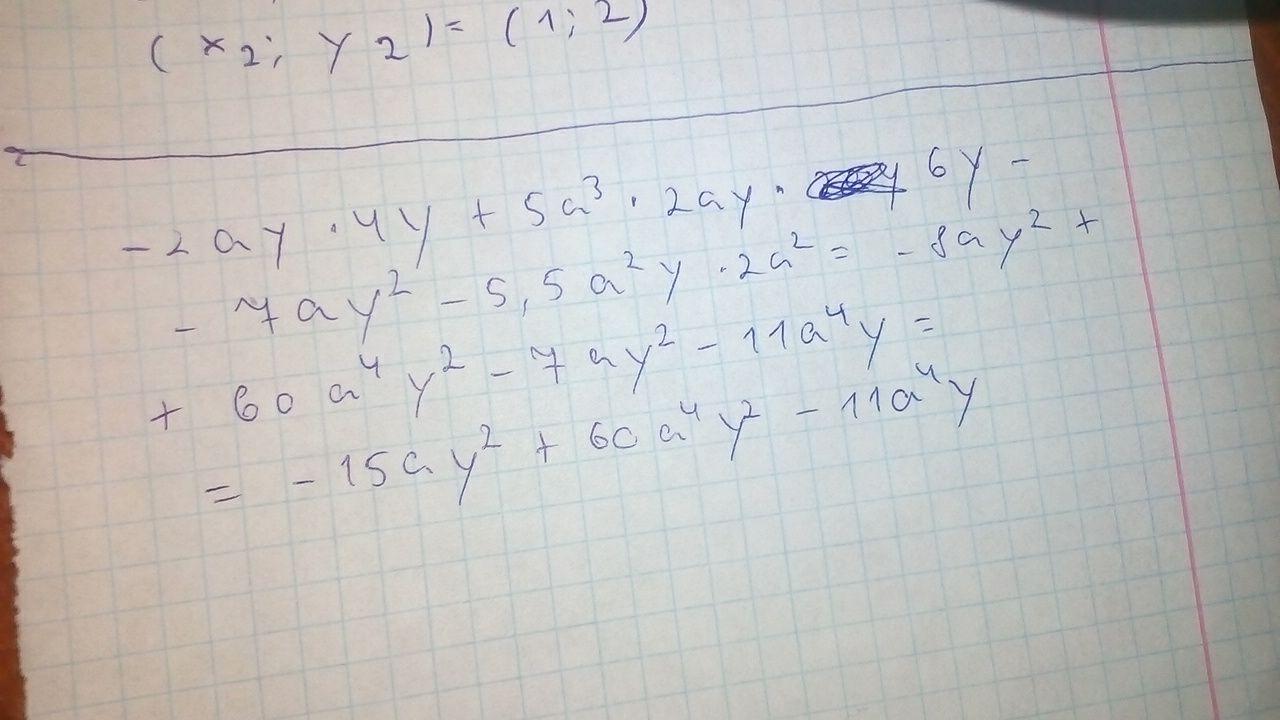 (x₂; y₂) = (1; 2)
-2ay · 4y + 5a³ · 2ay · 6y -
- 7ay² - 5,5a²y · 2a² = -8ay² +
+ 60a⁴y² - 7ay² - 11a⁴y =
= -15ay² + 60a⁴y² - 11a⁴y